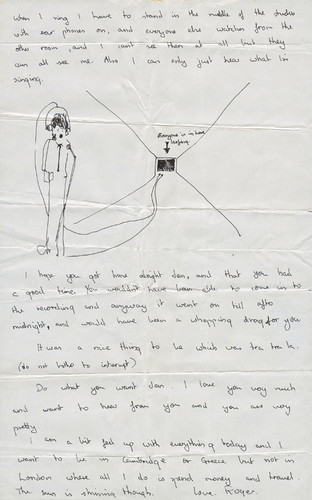 When I sing I have to stand in the middle of the studio
with ear phones on, and everyone else watches from the
other room, and I can't see them at all but they
can all see me. Also I can only just hear what I'm
singing.
Everyone is in here
I hope you got home alright Jen, and that you had
a good time. You wouldn't have been able to come in to
the recording and anyway it went on till after
midnight, and would have been a whopping drag for you
It was a nice thing to be which was tra la la.
(do not bother to interrupt)
Do what you want Jen. I love you very much
and want to hear from you and you are very
pretty
I am a bit fed up with everything today and I
want to be in Cambridge or Greece but not in
London where all I do is spend money and travel.
The sun is shining though. Love Roger